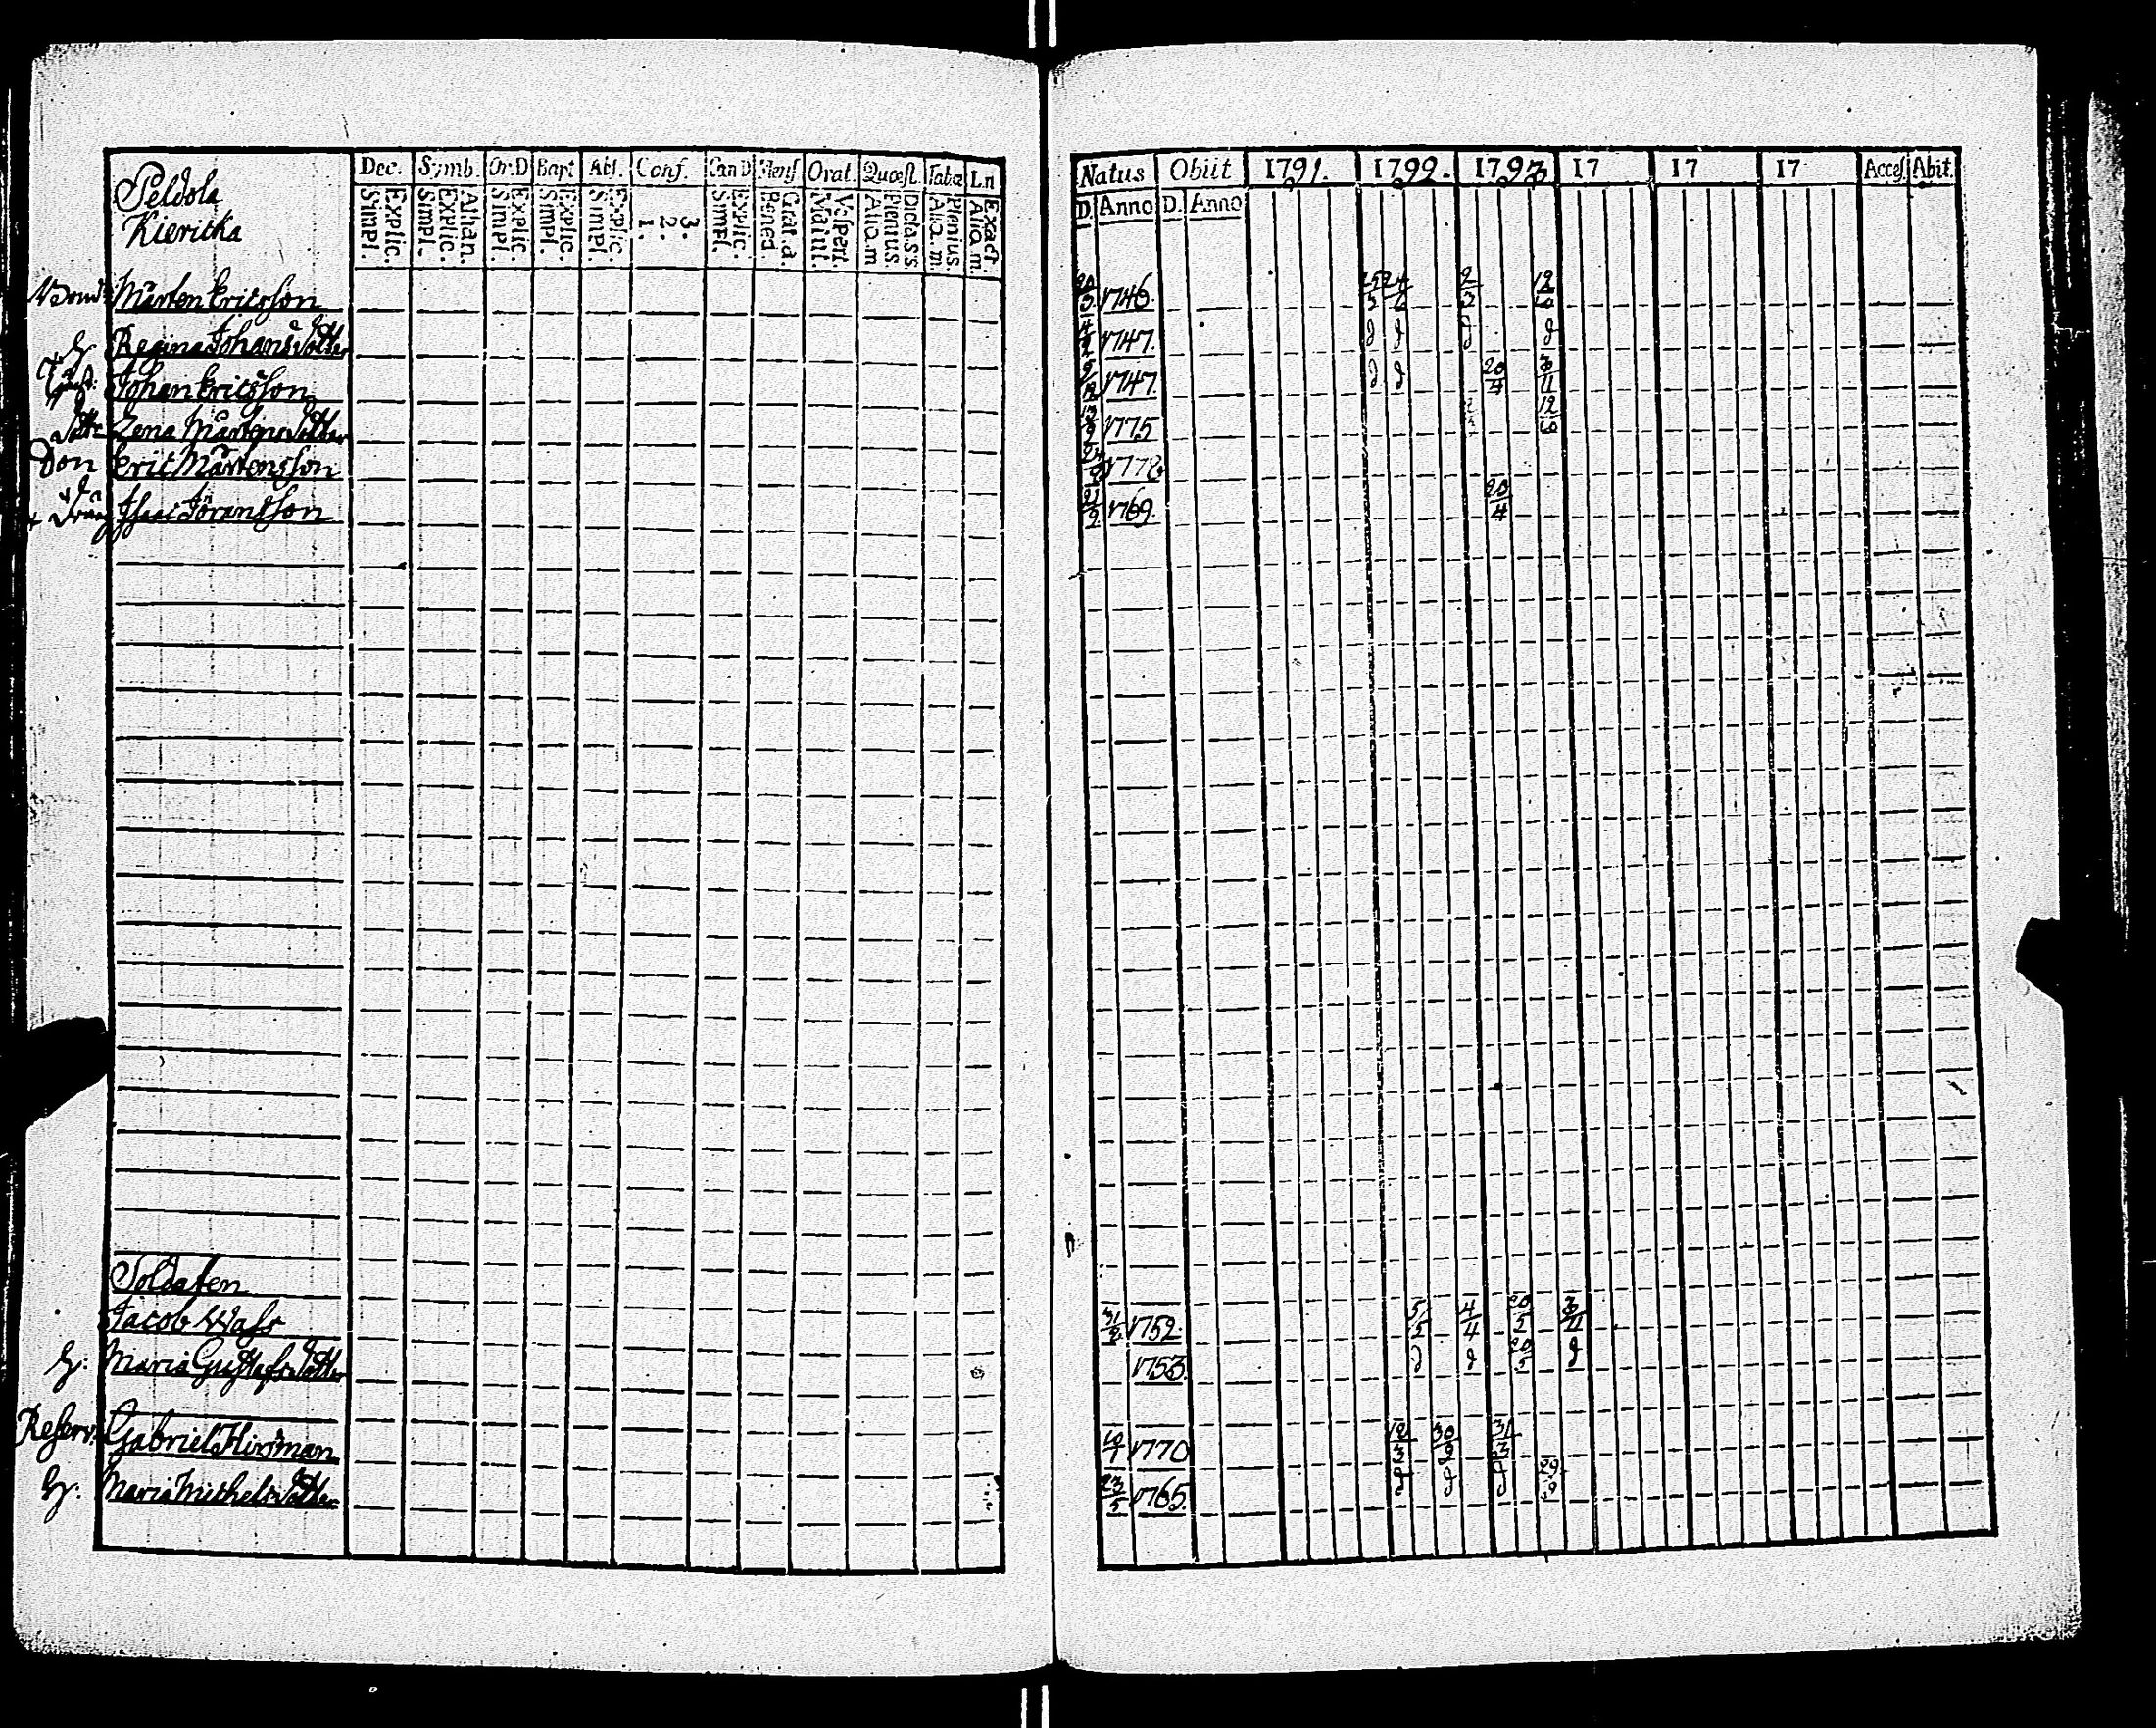 Peldola
Kieritka
Dec. Symb. Or:D Bapt Abs. Conf. Cœn D Mens Orat. Quæst. Tab.æ L.n
Simpl. Explic. Simpl. Explic. Athan. Simpl. Explic. Simpl. Explic. Simpl. Explic. 1. 2. 3. Simpl. Explic. Bened. Grat.a. Matut. Vesper. Alio.m Plenius. Dicta.s.s. Alio.m. Plenius. Alio.m. Exact.
Natus Obiit 1791. 1792. 1793 17 17 17 Acces. Abit.
D. Anno D. Anno
Bond Mårten Ericsson 20/3 1746. 25/3 24/6 2/3 12/10
H. Regina Johansdotter 4/2 1747. d d d d
Johan Ericsson 9/12 1747. d d 20/4 3/11
Dott. Lena Mårtensdotter 13/3 1775 12/10
Son Eric Mårtensson 1778
Dräng Isaac Jöransson 21/2 1769. 20/4
Soldaten
Jacob Wass 31/2 1752. 5/5 4/4 20/5 3/11
H: Maria Gustafsdotter 1753. d d 20/5 d
Reserv. Gabriel Hinsman 10/7 1770 12/3 30/9 31/3
H: Maria Michelsdotter 23/5 1765. d d d 29/9